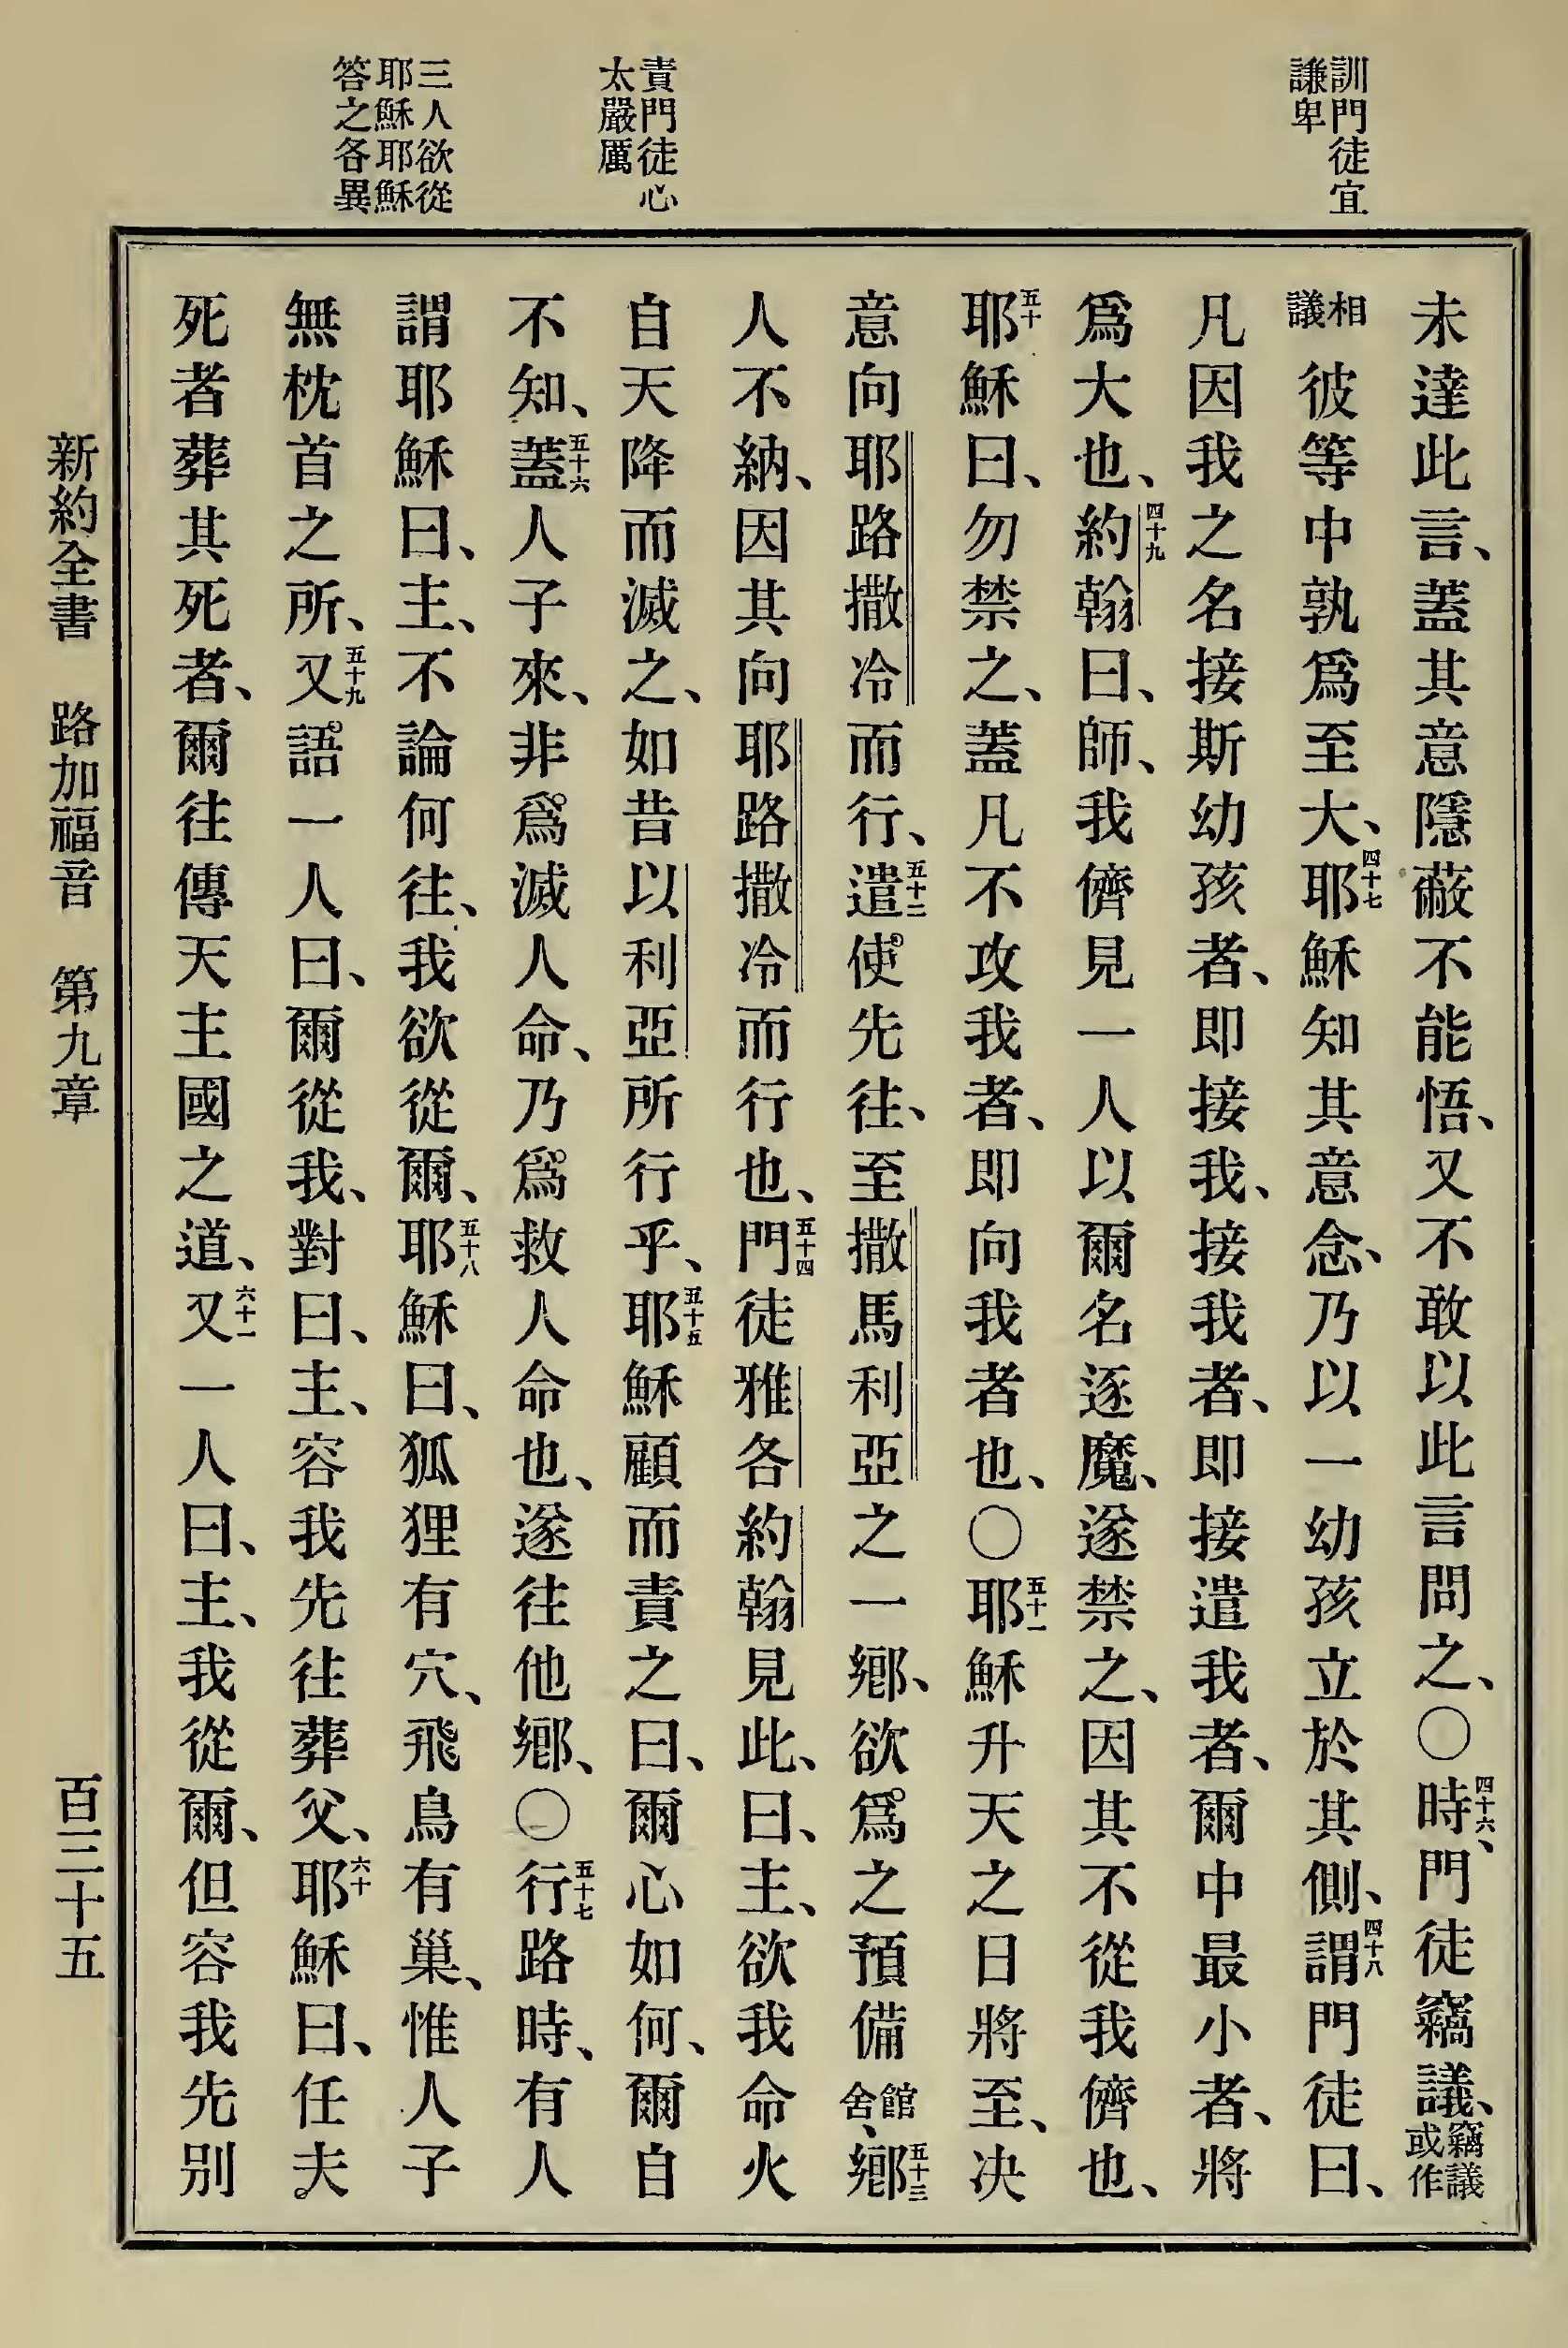 訓門徒宜
謙卑
責門徒心
太嚴厲
三人欲從
耶穌耶穌
答之各異
未達此言、蓋其意隱蔽不能悟、又不敢以此言問之、〇四十六、時門徒竊議、竊議或作
相議彼等中孰爲至大、四十七耶穌知其意念、乃以一幼孩立於其側、四十八謂門徒曰、
凡因我之名接斯幼孩者、即接我、接我者、即接遣我者、爾中最小者、將
爲大也、四十九約翰曰、師、我儕見一人以爾名逐魔、遂禁之、因其不從我儕也、
五十耶穌曰、勿禁之、蓋凡不攻我者、即向我者也、〇五十一耶穌升天之日將至、決
意向耶路撒冷而行、五十二遣使先往、至撒馬利亞之一鄉、欲爲之預備館舍、五十三鄉
人不納、因其向耶路撒冷而行也、五十四門徒雅各約翰見此、曰、主、欲我命火
自天降而滅之、如昔以利亞所行乎、五十五耶穌顧而責之曰、爾心如何、爾自
不知、五十六蓋人子來、非爲滅人命、乃爲救人命也、遂往他鄉、〇五十七行路時、有人
謂耶穌曰、主、不論何往、我欲從爾、五十八耶穌曰、狐狸有穴、飛鳥有巢、惟人子
無枕首之所、五十九又語一人曰、爾從我、對曰、主、容我先往葬父、六十耶穌曰、任夫
死者葬其死者、爾往傳天主國之道、六十一又一人曰、主、我從爾、但容我先別
新約全書 路加福音 第九章 百三十五